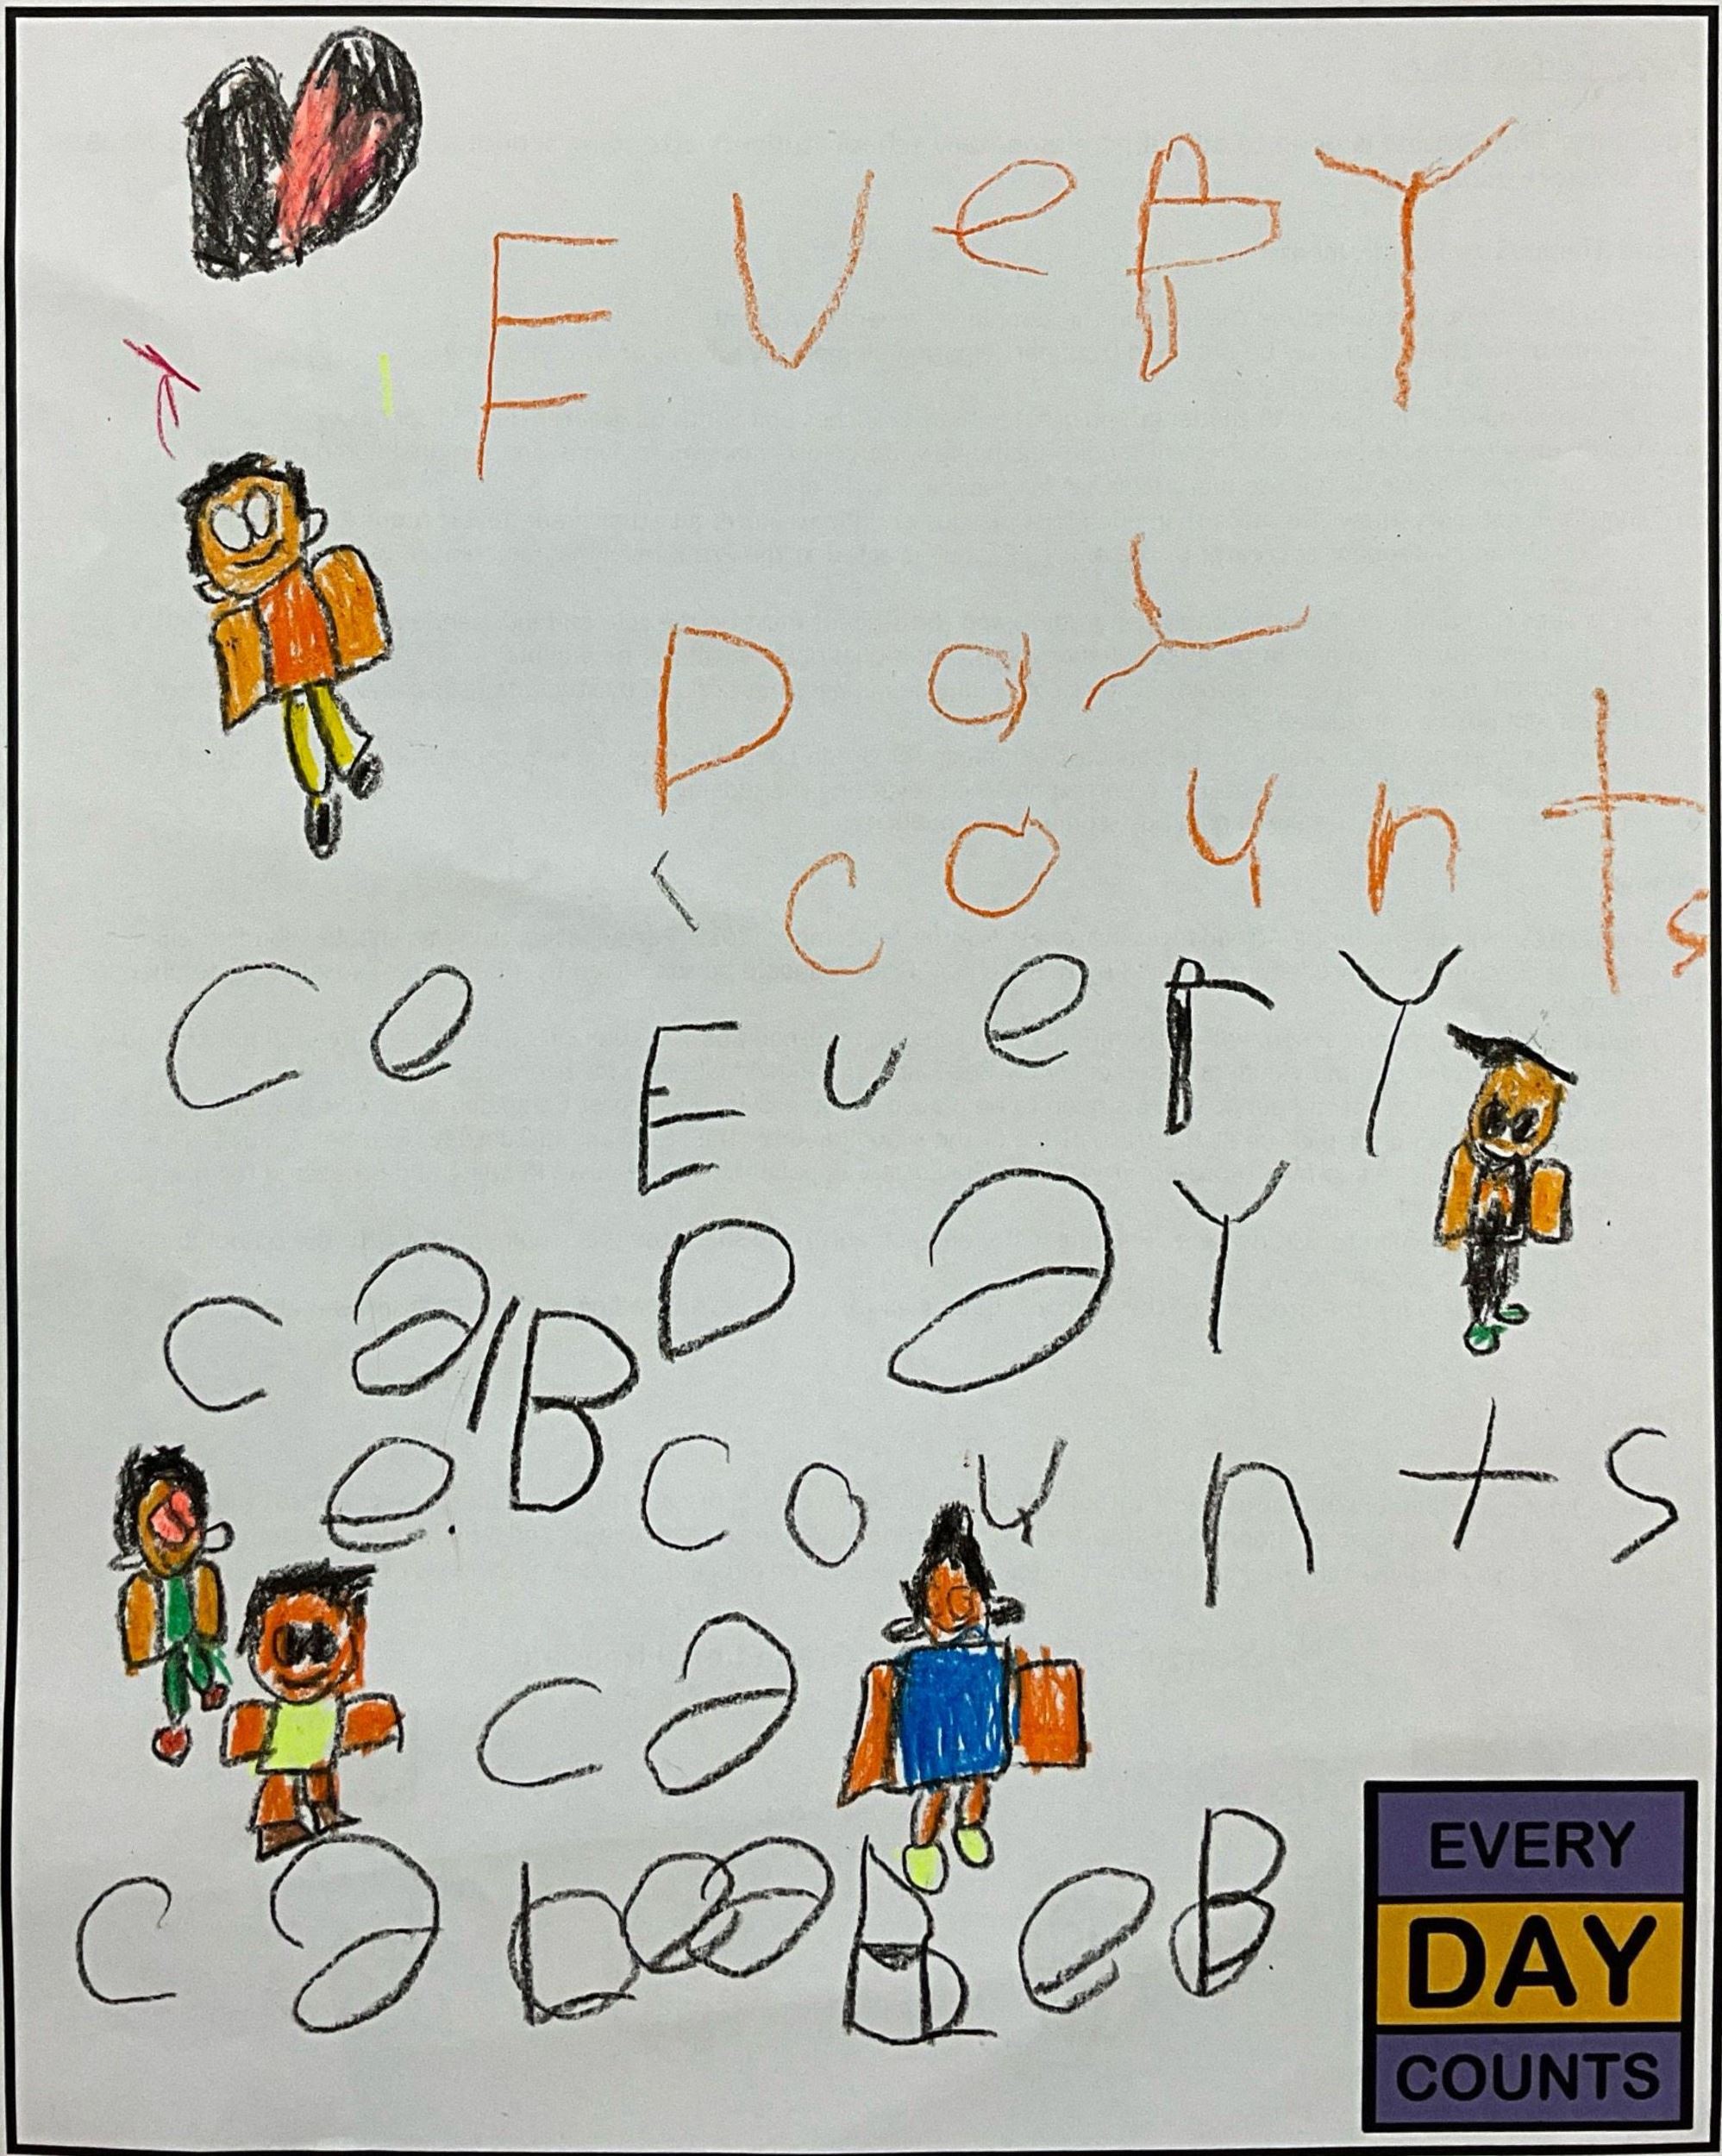 Every
Day
counts
ce Every
ca Day
e. B counts
ca
ca
e B
EVERY
DAY
COUNTS